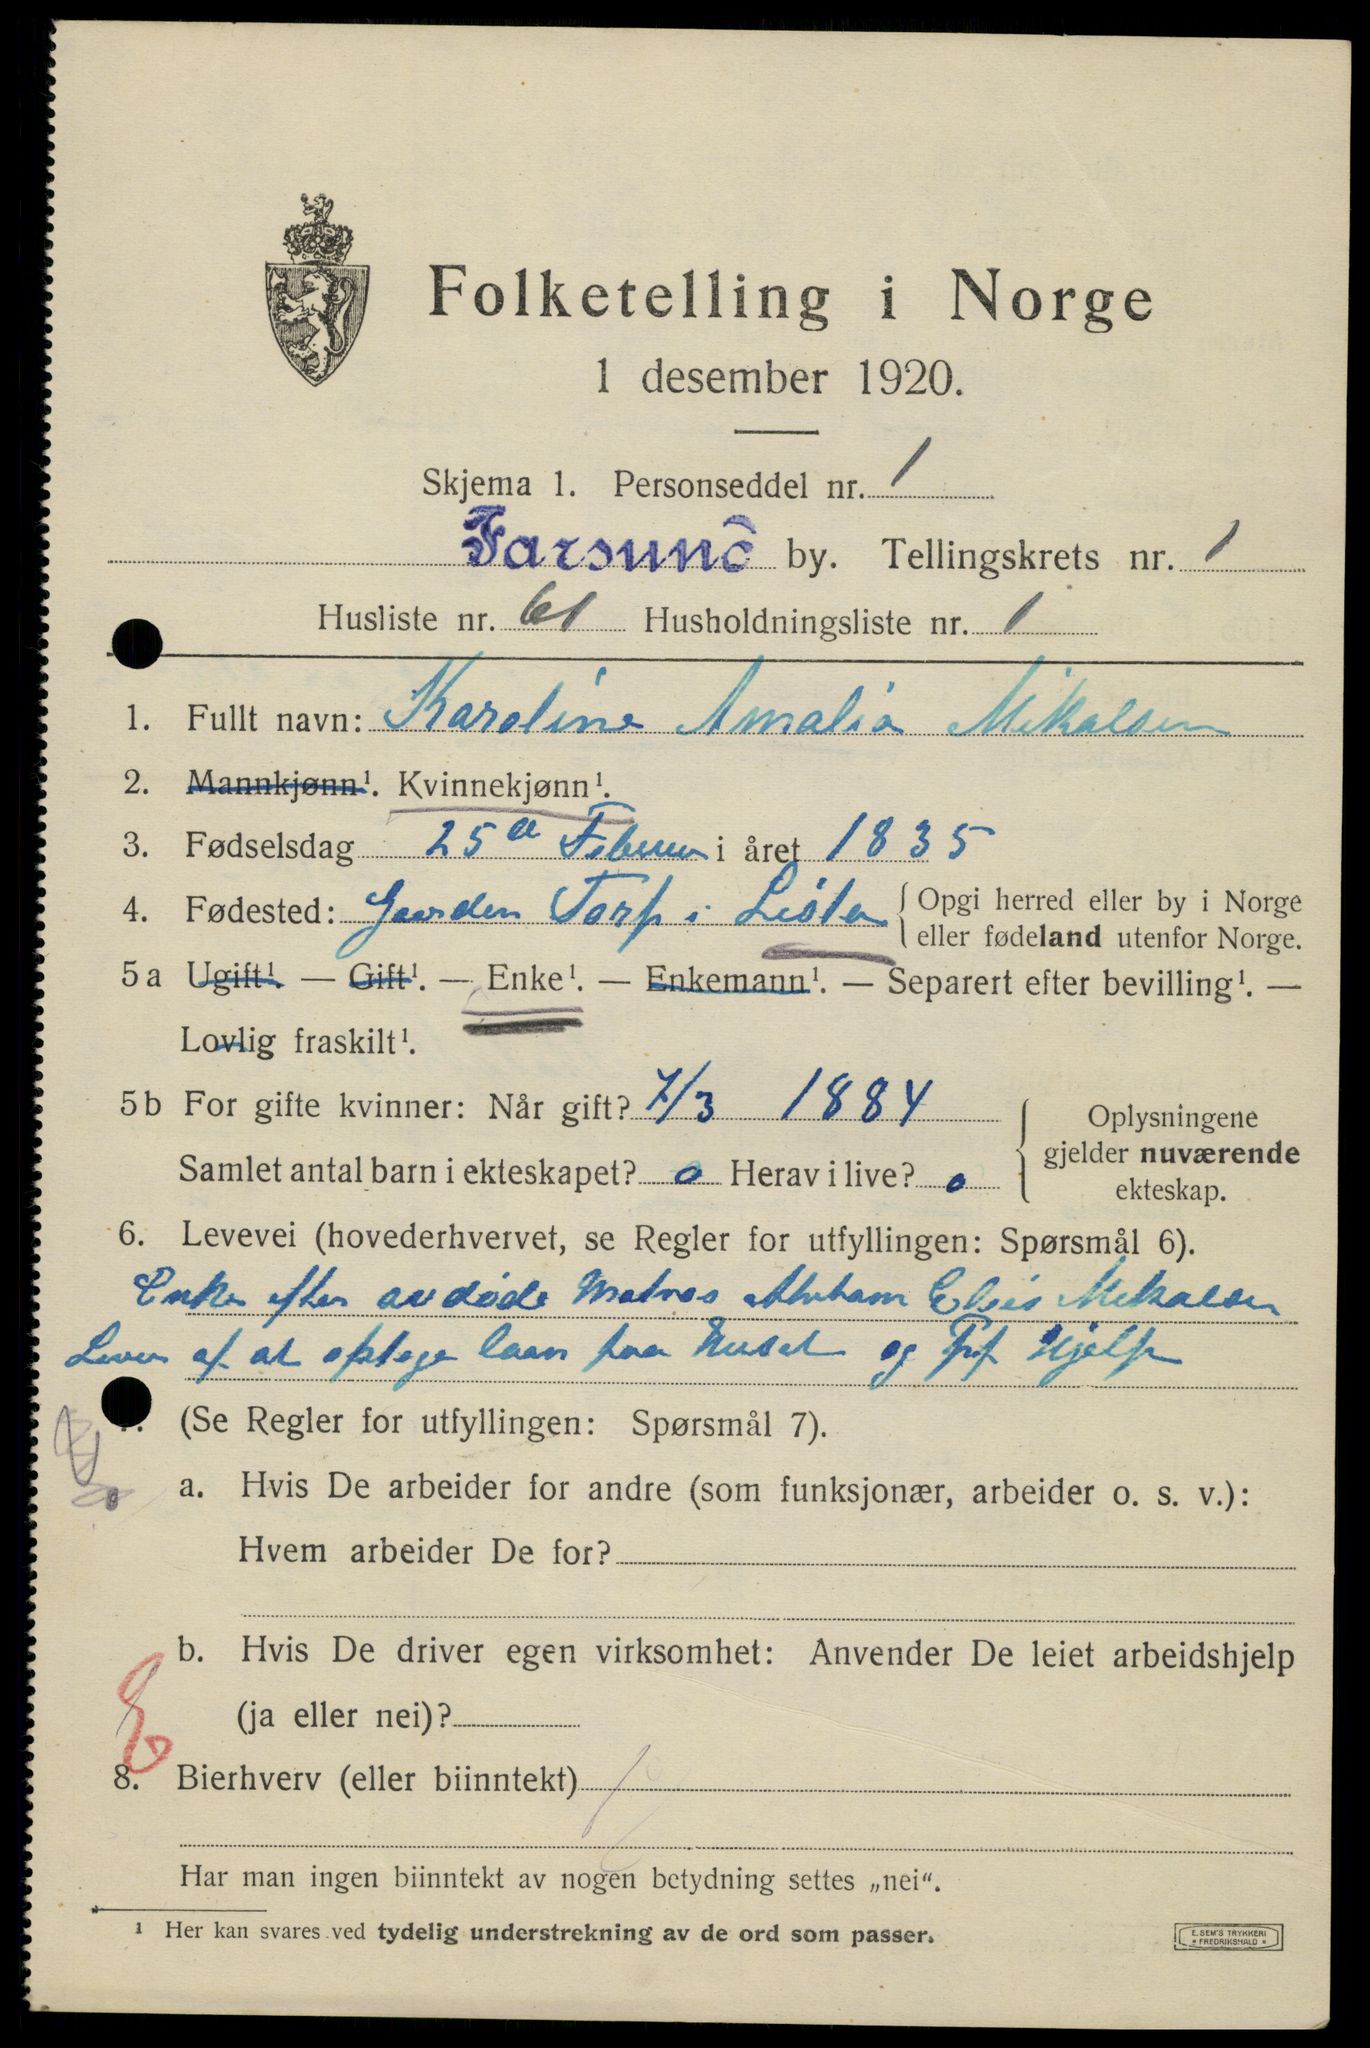 Folketelling i Norge
1 desember 1920.
Skjema 1. Personseddel nr. 1
Farsund by. Tellingskrets nr. 1
Husliste nr. 61 Husholdningsliste nr. 1
1. Fullt navn: Karoline Amalia Mikalsen
2. Mannkjønn¹. Kvinnekjønn¹.
3. Fødselsdag 25de Februar i året 1835
4. Fødested: Gaarden Torp i Lista { Opgi herred eller by i Norge
eller fødeland utenfor Norge.
5a Ugift¹ — Gift¹. — Enke¹. — Enkemann¹. — Separert efter bevilling¹. —
Lovlig fraskilt¹.
5b For gifte kvinner: Når gift? 7/3 1884
Samlet antal barn i ekteskapet? 0 Herav i live? 0
{ Oplysningene
gjelder nuværende
ekteskap.
6. Levevei (hovederhvervet, se Regler for utfyllingen: Spørsmål 6).
Enke efter avdøde Matros Abraham Elias Mikalsen
Lever af at optage laan paa Huset og Hjelp
7. (Se Regler for utfyllingen: Spørsmål 7).
a. Hvis De arbeider for andre (som funksjonær, arbeider o. s. v.):
Hvem arbeider De for?
b. Hvis De driver egen virksomhet: Anvender De leiet arbeidshjelp
(ja eller nei)?
8. Bierhverv (eller biinntekt)
Har man ingen biinntekt av nogen betydning settes „nei“.
¹ Her kan svares ved tydelig understrekning av de ord som passer.
E. SEM'S TRYKKERI
FREDRIKSHALD